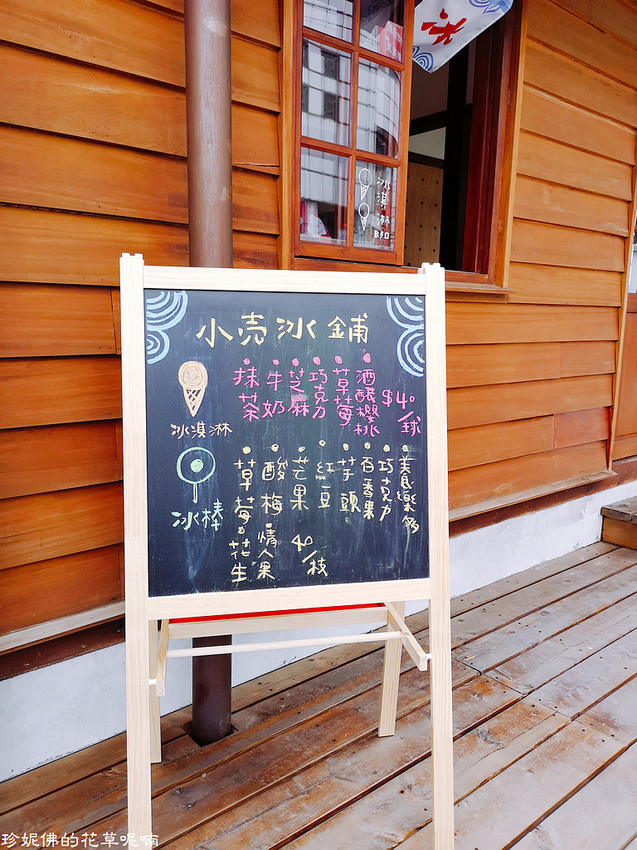 冰
冰淇淋
小売冰鋪
冰淇淋
抹茶
牛奶
芝麻
巧克力
草莓
酒釀櫻桃
$40/球
冰棒
草莓
酸梅
芒果
紅豆
芋頭
百香果
巧克力
養樂多
花生
情人果
40/枝
珍妮佛的花草呢喃